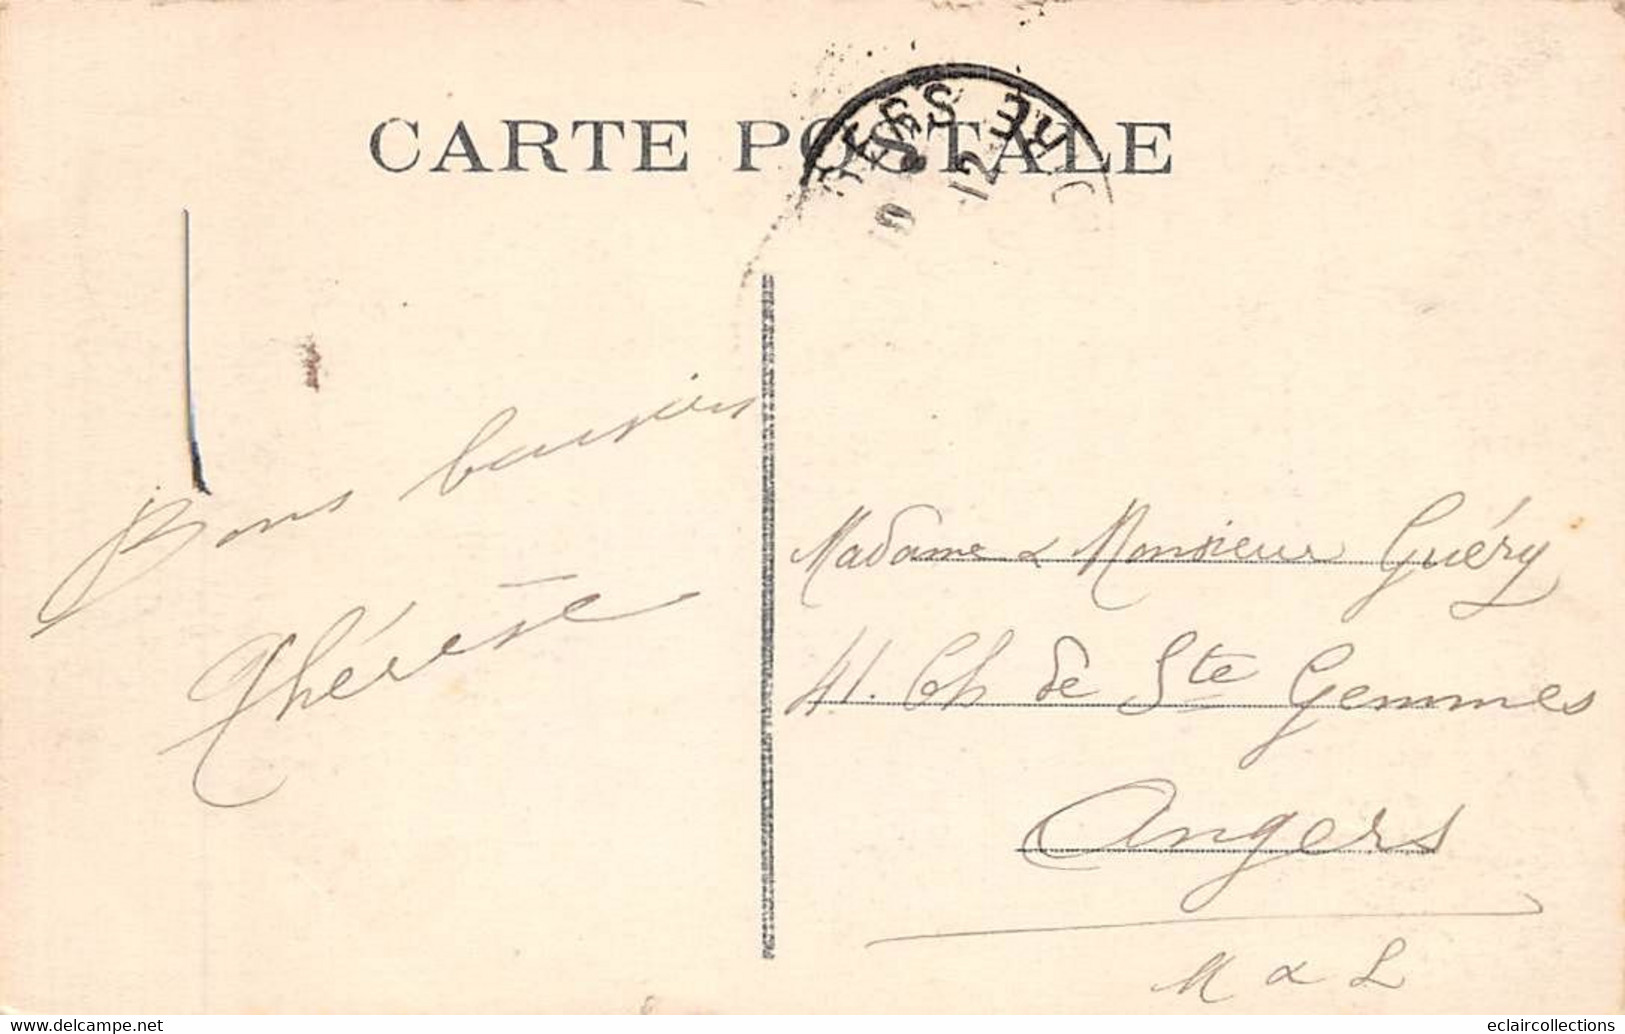 CARTE POSTALE
12
Bons baisers
Thérèse
Madame & Monsieur Guéry
41. Ch de Ste Gemmes
Angers
M & L
www.delcampe.net
eclaircollections